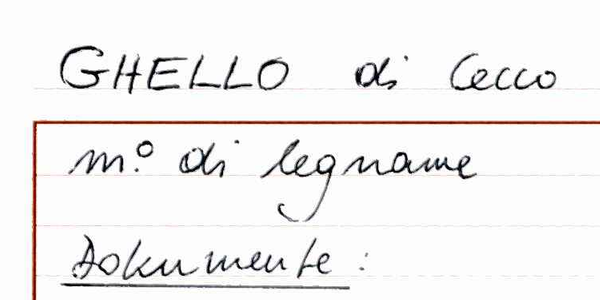 GHELLO di Cecco
m.º di legname
Dokumente: